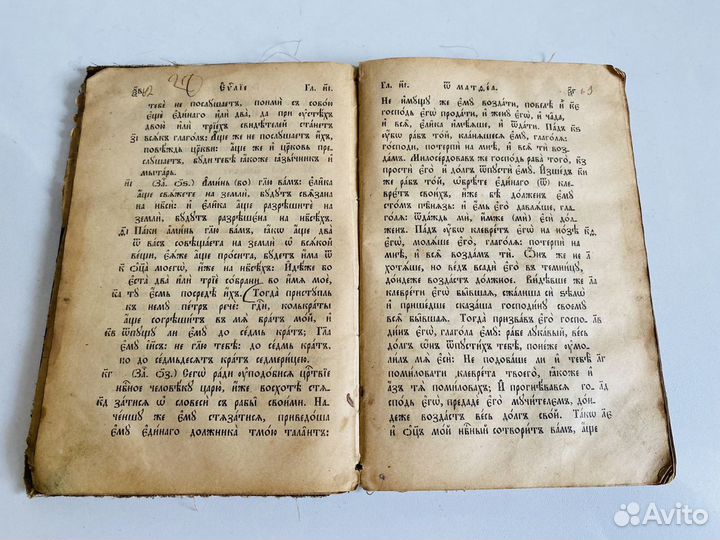 Еѵⷢ҇лїе Гл. и҃і.
тебѐ не послꙋ́шаетъ, поимѝ съ собо́ю
є҆щѐ є҆ди́наго и҆лѝ два̀, да при ᲂу҆стѣ́хъ
двою̀ и҆лѝ трїе́хъ свидѣ́телей ста́нетъ
з҃і всѧ́къ глаго́лъ: а҆́ще же не послꙋ́шаетъ и҆́хъ,
повѣ́ждь цр҃кви: а҆́ще же и҆ цр҃ковь пре-
слꙋ́шаетъ, бꙋ́ди тебѣ̀ ꙗ҆́коже ꙗ҆зы́чникъ и҆
мыта́рь.
и҃і (За҄. ѻ҃в.) А҆ми́нь (бо) гл҃ю ва́мъ: є҆ли̑ка
а҆́ще свѧ́жете на землѝ, бꙋ́дꙋтъ свѧ̑зана
на нб҃сѝ: и҆ є҆ли̑ка а҆́ще разрѣшитѐ на
землѝ, бꙋ́дꙋтъ разрѣшє́на на нб҃сѣ́хъ.
ѳ҃і Па́ки а҆ми́нь гл҃ю ва́мъ, ꙗ҆́кѡ а҆́ще два̀
ѿ ва́съ совѣща́ета на землѝ ѡ҆ всѧ́кой
ве́щи, є҆ѧ́же а҆́ще про́сита, бꙋ́детъ и҆́ма ѿ
к҃ ѻ҆ц҃а̀ моегѡ̀, и҆́же на нб҃сѣ́хъ. И҆дѣ́же бо
є҆́ста два̀ и҆лѝ трїѐ со́брани во и҆́мѧ моѐ,
к҃а тꙋ̀ є҆́смь посредѣ̀ и҆́хъ. Тогда̀ пристꙋ́пль
къ немꙋ̀ пе́тръ речѐ: гдⷭ҇и, колькра́ты
а҆́ще согрѣши́тъ въ мѧ̀ бра́тъ мо́й, и҆
к҃в ѿпꙋщꙋ̀ ли є҆мꙋ̀ до се́дмь кра́тъ; Гл҃а
є҆мꙋ̀ і҆и҃съ: не гл҃ю тебѣ̀: до се́дмь кра́тъ,
но до се́дмьдесѧтъ кра́тъ седмери́цею.
к҃г (За҄. ѻ҃з.) Сегѡ̀ ра́ди ᲂу҆подо́бисѧ црⷭ҇твїе
нбⷭ҇ное человѣ́кꙋ царю̀, и҆́же восхотѣ̀ стѧ-
к҃д за́тисѧ ѡ҆ словесѝ съ рабы̑ свои́ми. На-
че́ншꙋ же є҆мꙋ̀ стѧза́тисѧ, приведо́ша
є҆мꙋ̀ є҆ди́наго должника̀ тмо́ю тала̑нтъ:
Гл. и҃і. ѿ матѳе́а.
Не и҆мꙋ́щꙋ же є҆мꙋ̀ возда́ти, повелѣ̀ и҆̀ к҃е
госпо́дь є҆гѡ̀ прода́ти, и҆ женꙋ̀ є҆гѡ̀, и҆ ча̑да,
и҆ всѧ̑, є҆ли̑ка и҆мѣ́ѧше, и҆ ѿда́ти. Па́дъ к҃ѕ
ᲂу҆̀бо ра́бъ то́й, кла́нѧшесѧ є҆мꙋ̀, глаго́лѧ:
го́споди, потерпѝ на мнѣ̀, и҆ всѧ̑ тѝ возда́мъ.
Милосе́рдовавъ же госпо́дь раба̀ того̀, к҃з
простѝ є҆го̀ и҆ до́лгъ ѿпꙋстѝ є҆мꙋ̀. И҆зше́дъ к҃и
же ра́бъ то́й, ѡ҆брѣ́те є҆ди́наго (ѿ) кле-
вре́тъ свои́хъ, и҆́же бѣ̀ до́лженъ є҆мꙋ̀
сто́мъ пѣ̑нѧзь: и҆ є҆́мь є҆го̀ давлѧ́ше, гла-
го́лѧ: ѿда́ждь мѝ, и҆́мже (мѝ) є҆сѝ до́л-
женъ. Па́дъ ᲂу҆̀бо клевре́тъ є҆гѡ̀ на но́зѣ к҃ѳ
є҆гѡ̀, молѧ́ше є҆го̀, глаго́лѧ: потерпѝ на
мнѣ̀, и҆ всѧ̑ возда́мъ тѝ. Ѻ҆́нъ же не л҃
хотѧ́ше, но ве́дъ всадѝ є҆го̀ въ темни́цꙋ,
до́ндеже возда́стъ до́лжное. Ви́дѣвше же л҃а
клевре́ти є҆гѡ̀ бы̑вшаѧ, сжа́лиша сѝ ѕѣлѡ̀
и҆ прише́дше сказа́ша господи́нꙋ своемꙋ̀
всѧ̑ бы̑вшаѧ. Тогда̀ призва́въ є҆го̀ госпо- л҃в
ди́нъ є҆гѡ̀, глаго́ла є҆мꙋ̀: ра́бе лꙋка́вый, ве́сь
до́лгъ ѡ҆́нъ ѿпꙋсти́хъ тебѣ̀, поне́же ᲂу҆мо-
ли́лъ мѧ̀ є҆сѝ: Не подоба́ше ли и҆ тебѣ̀ л҃г
поми́ловати клевре́та твоего̀, ꙗ҆́коже и҆
а҆́зъ тѧ̀ поми́ловахъ; И҆ прогнѣ́вавсѧ го- л҃д
спо́дь є҆гѡ̀, предадѐ є҆го̀ мꙋчи́телємъ, до́н-
деже возда́стъ ве́сь до́лгъ сво́й. Та́кѡ л҃е
и҆ ѻ҆ц҃ъ мо́й нбⷭ҇ный сотвори́тъ ва́мъ, а҆́ще
Avito